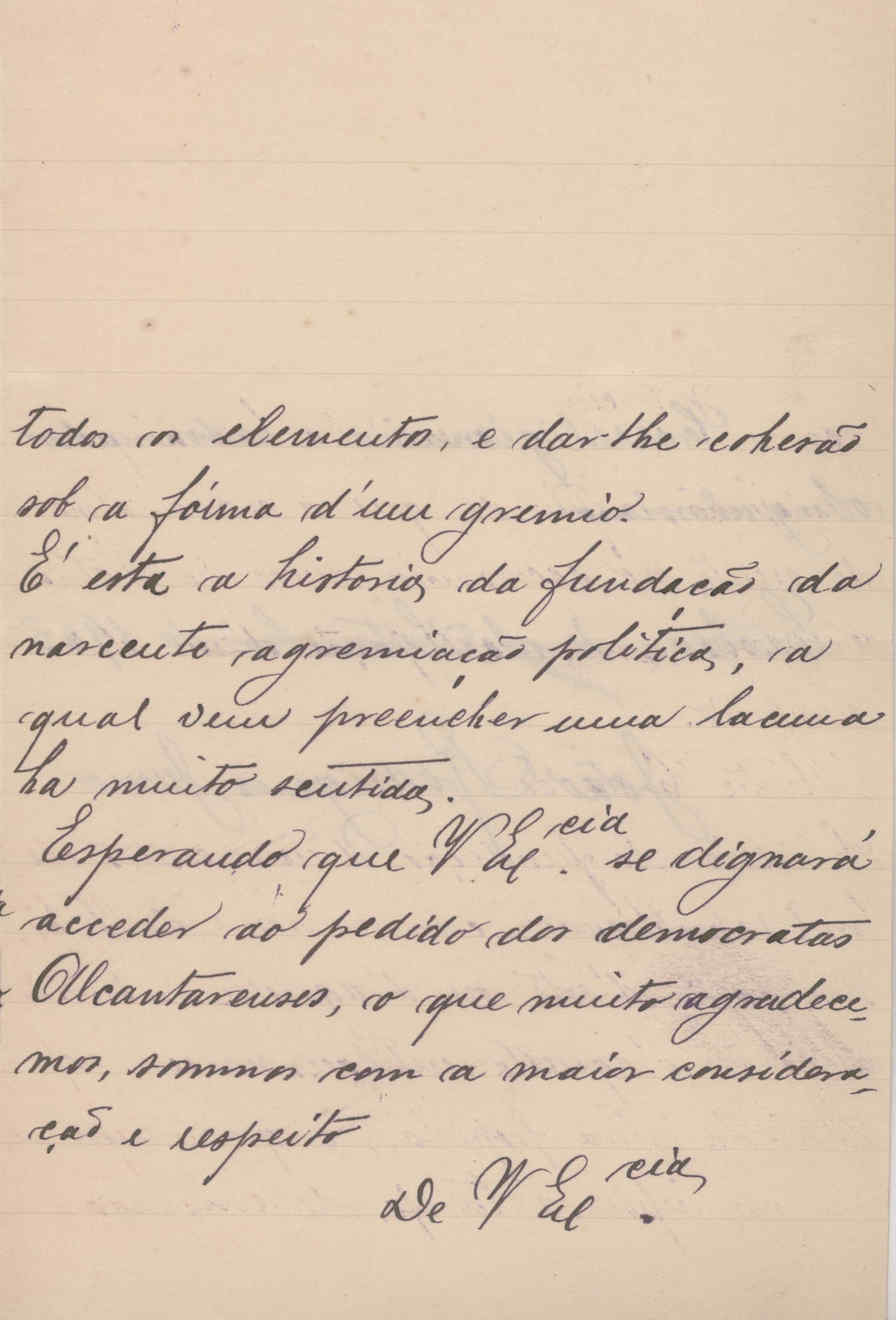 todos os elementos, e dar-lhe cohesão
sob a fórma d'um gremio.
É esta a historia da fundação da
nascente agremiação politica, a
qual vem preencher uma lacuna
ha muito sentida.
Esperando que V Ex.cia se dignará
acceder ao pedido dos democratas
Alcantarenses, o que muito agradece-
mos, sommos com a maior considera-
ção e respeito
De V Ex.cia